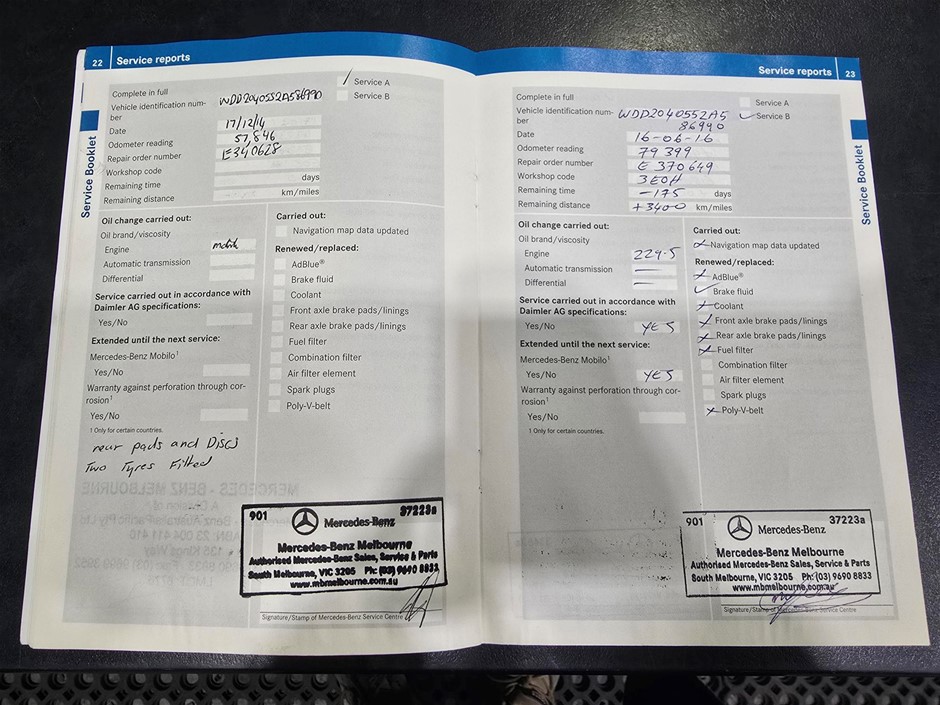 22 Service reports
Service Booklet
Complete in full
Service A
Service B
Vehicle identification num-
ber WDD2040552A586990
Date 17/12/14
Odometer reading 57,846
Repair order number E340628
Workshop code
Remaining time days
Remaining distance km/miles
Oil change carried out:
Oil brand/viscosity
Engine
Automatic transmission
Differential
Service carried out in accordance with
Daimler AG specifications:
Yes/No
Extended until the next service:
Mercedes-Benz Mobilo¹
Yes/No
Warranty against perforation through cor-
rosion¹
Yes/No
¹ Only for certain countries.
rear pads and Discs
Two Tyres Fitted
Carried out:
Navigation map data updated
Renewed/replaced:
AdBlue®
Brake fluid
Coolant
Front axle brake pads/linings
Rear axle brake pads/linings
Fuel filter
Combination filter
Air filter element
Spark plugs
Poly-V-belt
901 Mercedes-Benz 37223a
Mercedes-Benz Melbourne
Authorised Mercedes-Benz Sales, Service & Parts
South Melbourne, VIC 3205 Ph: (03) 9690 8833
www.mbmelbourne.com.au
Signature/Stamp of Mercedes-Benz Service Centre
Service reports 23
Service Booklet
Complete in full
Service A
Service B
Vehicle identification num-
ber WDD2040552A5
86990
Date 16-06-16
Odometer reading 79 399
Repair order number E 370649
Workshop code 3E0H
Remaining time -175 days
Remaining distance +3400 km/miles
Oil change carried out:
Oil brand/viscosity
Engine 229.5
Automatic transmission —
Differential —
Service carried out in accordance with
Daimler AG specifications:
Yes/No YES
Extended until the next service:
Mercedes-Benz Mobilo¹
Yes/No YES
Warranty against perforation through cor-
rosion¹
Yes/No
¹ Only for certain countries.
Carried out:
Navigation map data updated
Renewed/replaced:
AdBlue®
Brake fluid
Coolant
Front axle brake pads/linings
Rear axle brake pads/linings
Fuel filter
Combination filter
Air filter element
Spark plugs
Poly-V-belt
901 Mercedes-Benz 37223a
Mercedes-Benz Melbourne
Authorised Mercedes-Benz Sales, Service & Parts
South Melbourne, VIC 3205 Ph: (03) 9690 8833
www.mbmelbourne.com.au
Signature/Stamp of Mercedes-Benz Service Centre